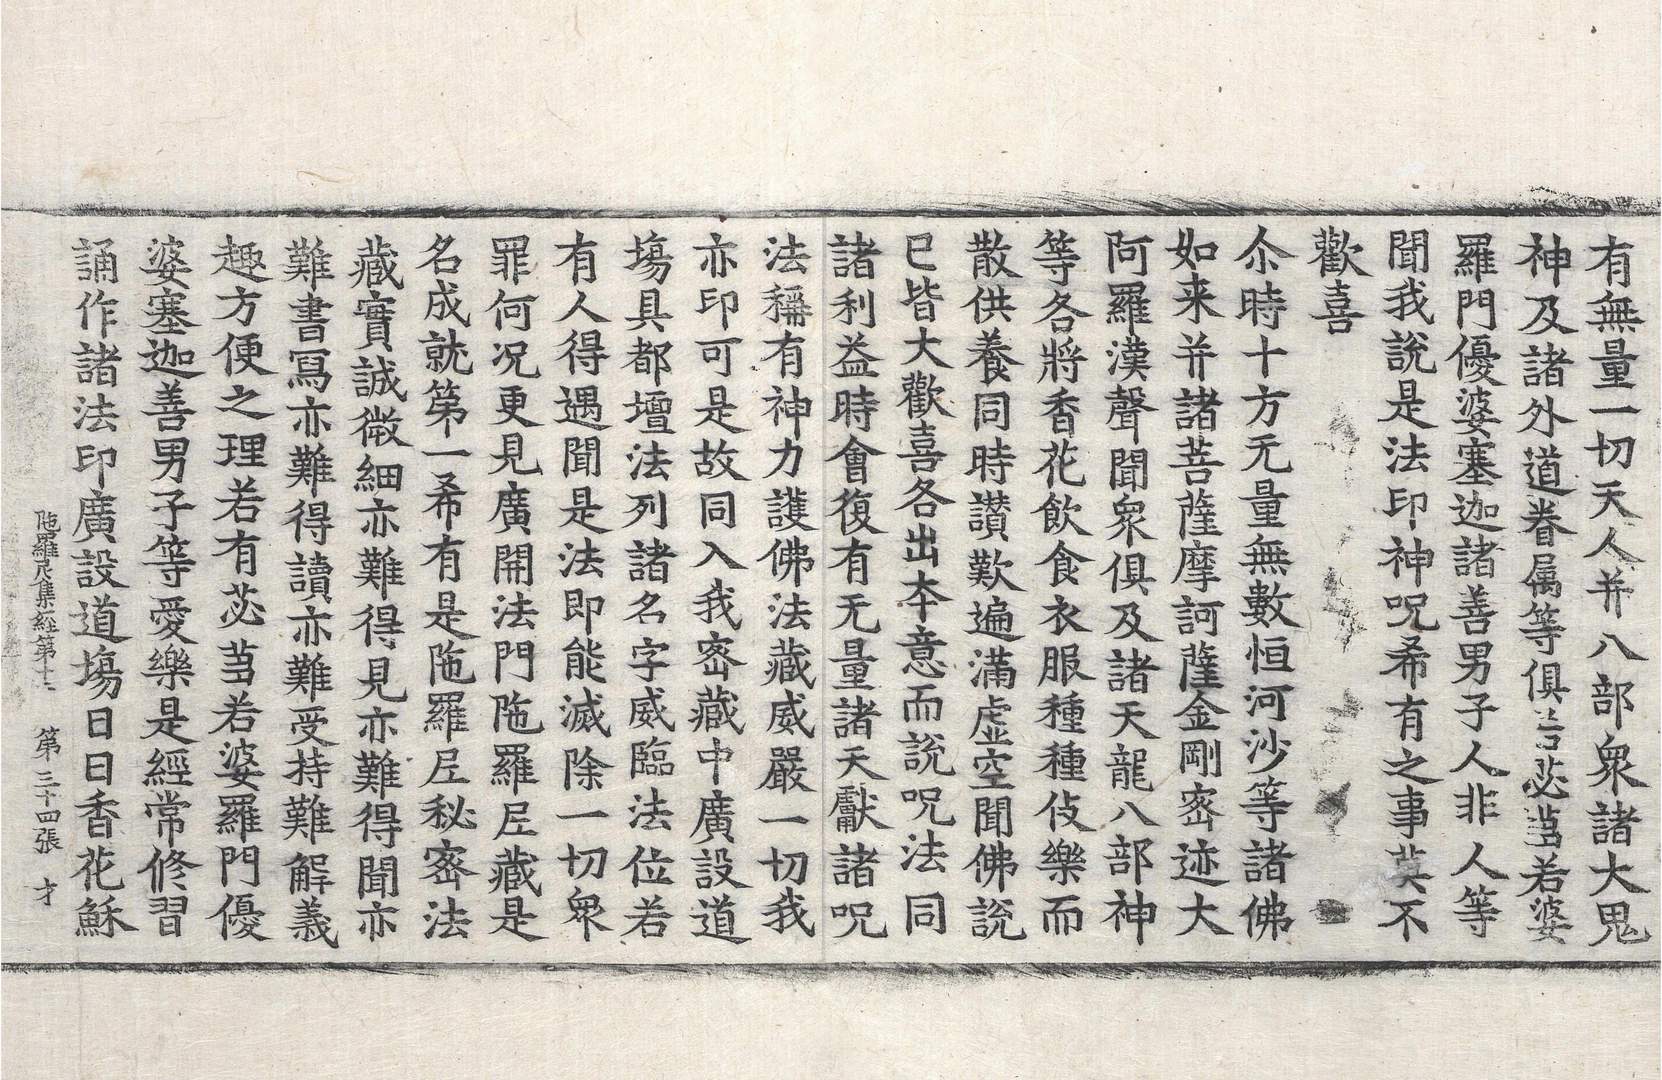 有無量一切天人并八部衆諸大鬼
神及諸外道眷属等俱若苾蒭若婆
羅門優婆塞迦諸善男子人非人等
聞我說是法印神呪希有之事莫不
歡喜
尒時十方无量無數恒河沙等諸佛
如来并諸菩薩摩訶薩金剛宻迹大
阿羅漢聲聞衆俱及諸天龍八部神
等各將香花飲食衣服種種伎樂而
散供養同時讃歎遍滿虛空聞佛說
已皆大歡喜各出夲意而說呪法同
諸利益時會復有无量諸天獻諸呪
法稱有神力護佛法藏威嚴一切我
亦印可是故同入我宻藏中廣設道
塲具都壇法列諸名字威臨法位若
有人得遇聞是法即能滅除一切衆
罪何况更見廣開法門陁羅尼藏是
名成就第一希有是陁羅尼秘宻法
藏實誠微細亦難得見亦難得聞亦
難書寫亦難得讀亦難受持難解義
趣方便之理若有苾蒭若婆羅門優
婆塞迦善男子等愛樂是經常修習
誦作諸法印廣設道塲日日香花酥
陁羅尼集經第十二 第三十四張 才